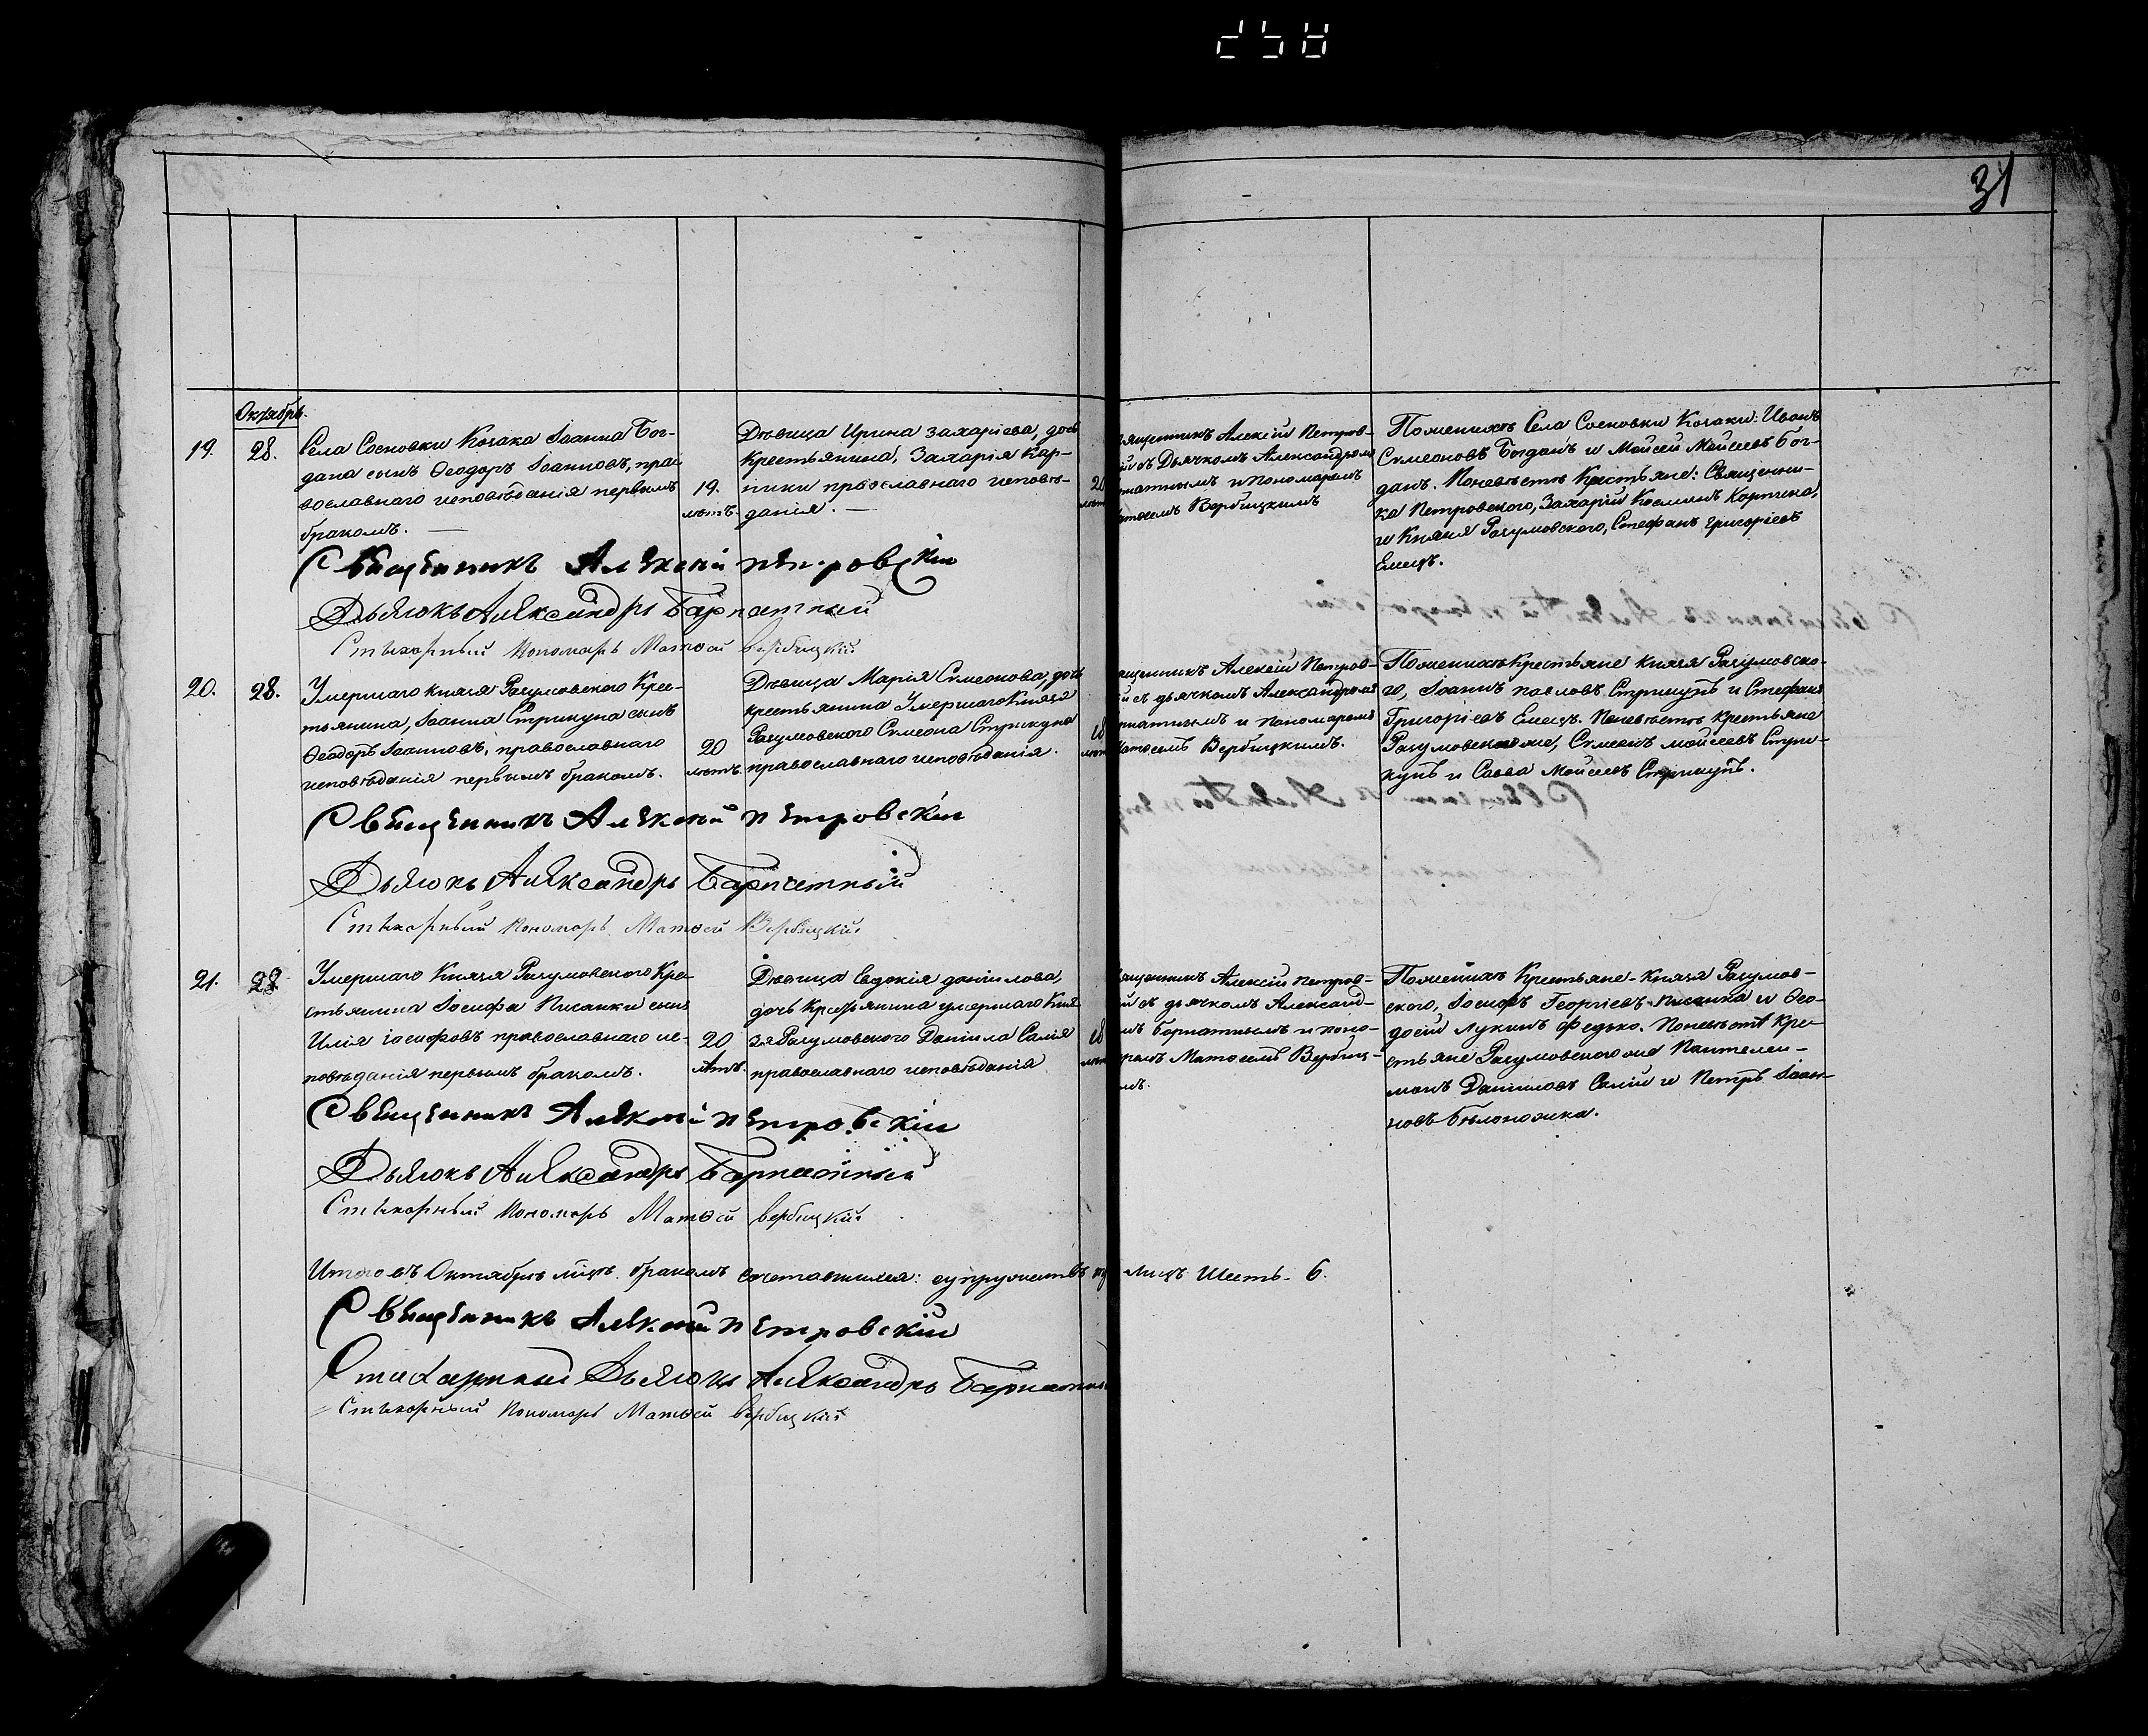 258
31
Октябрь.
19.
28.
Села Сосновки Козака Іоанна Бог-
дана сынъ Ѳеодоръ Іоанновъ, пра-
вославнаго исповѣданія первымъ
бракомъ. —
19.
лѣтъ.
Дѣвица Ирина Захаріева, дочь
Крестьянина, Захарія Кар-
пики православнаго исповѣ-
данія. —
20
лѣт
ященникъ Алексій Петров-
ій съ Дьячкомъ Александромъ
рнатнымъ и Пономаремъ
атѳеемъ Вербицкимъ
По женихѣ Села Сосновки Козаки: Иванъ
Симеоновъ Богданъ и Мойсей Мойсеевъ Бог-
данъ. По невѣстѣ Крестьяне: Священни-
ка Петровскаго, Захарій Космынъ
и Князя Разумовского, Стефанъ Григоріевъ
Емецъ.
Священникъ Алексій Петровскій
Дьячокъ Александръ Барнатный
Стихарный Пономарь Матѳей Вербицкій
20.
28.
Умершаго Князя Разумовского Крес-
тьянина, Іоанна Стрикуна сынъ
Ѳеодоръ Іоанновъ, православнаго
исповѣданія первымъ бракомъ.
20
лѣтъ.
Дѣвица Марія Симеонова, дочь
крестьянина Умершаго Князя
Разумовского Симеона Стрикуна
православнаго исповѣданія.
18
лѣт
ященникъ Алексій Петров-
ій съ дьячкомъ Александромъ
рнатнымъ и Пономаремъ
Матѳеемъ Вербицкимъ.
По женихѣ Крестьяне Князя Разумовско-
го, Іоаннъ Павловъ Стрикунъ и Стефанъ
Григоріевъ Емецъ. По невѣстѣ крестьяне
Разумовского же, Симеонъ Мойсеевъ Стри-
кунъ и Савва Мойсеевъ Стрикунъ.
Священникъ Алексій Петровскій
Дьячокъ Александръ Барнатный
Стихарный Пономарь Матѳей Вербицкій
21.
28
Умершаго Князя Разумовского Кре-
стьянина Іосифа Писанки сынъ
Илія Іосифовъ православнаго ис-
повѣданія первымъ бракомъ.
20
лѣтъ.
Дѣвица Евдокія Даніилова,
дочь Крестьянина умершаго Кня-
зя Разумовского Даніила Салія
православнаго исповѣданія
18
лѣт
ященникъ Алексій Петров-
ій съ дьячкомъ Александ-
мъ Барнатнымъ и поно-
аремъ Матѳеемъ Вербиц-
мъ.
По женихѣ Крестьяне Князя Разумов-
ского, Іосифъ Георгіевъ Писанка и Ѳео-
досій Лукинъ Федько. По невѣстѣ Кре-
стьяне Разумовского же Пантелеи-
монъ Даниловъ Салій и Петръ Іоан-
новъ Бѣлоножка.
Священникъ Алексій Петровскій
Дьячокъ Александръ Барнатный
Стихарный Пономарь Матѳей Вербицкій
Итого въ Октябрѣ мцѣ бракомъ сочетавшихся: супружествъ лицъ Шесть - 6.
Священникъ Алексій Петровскій
Стихарный Дьячокъ Александръ Барнатный
Стихарный Пономарь Матѳей Вербицкій